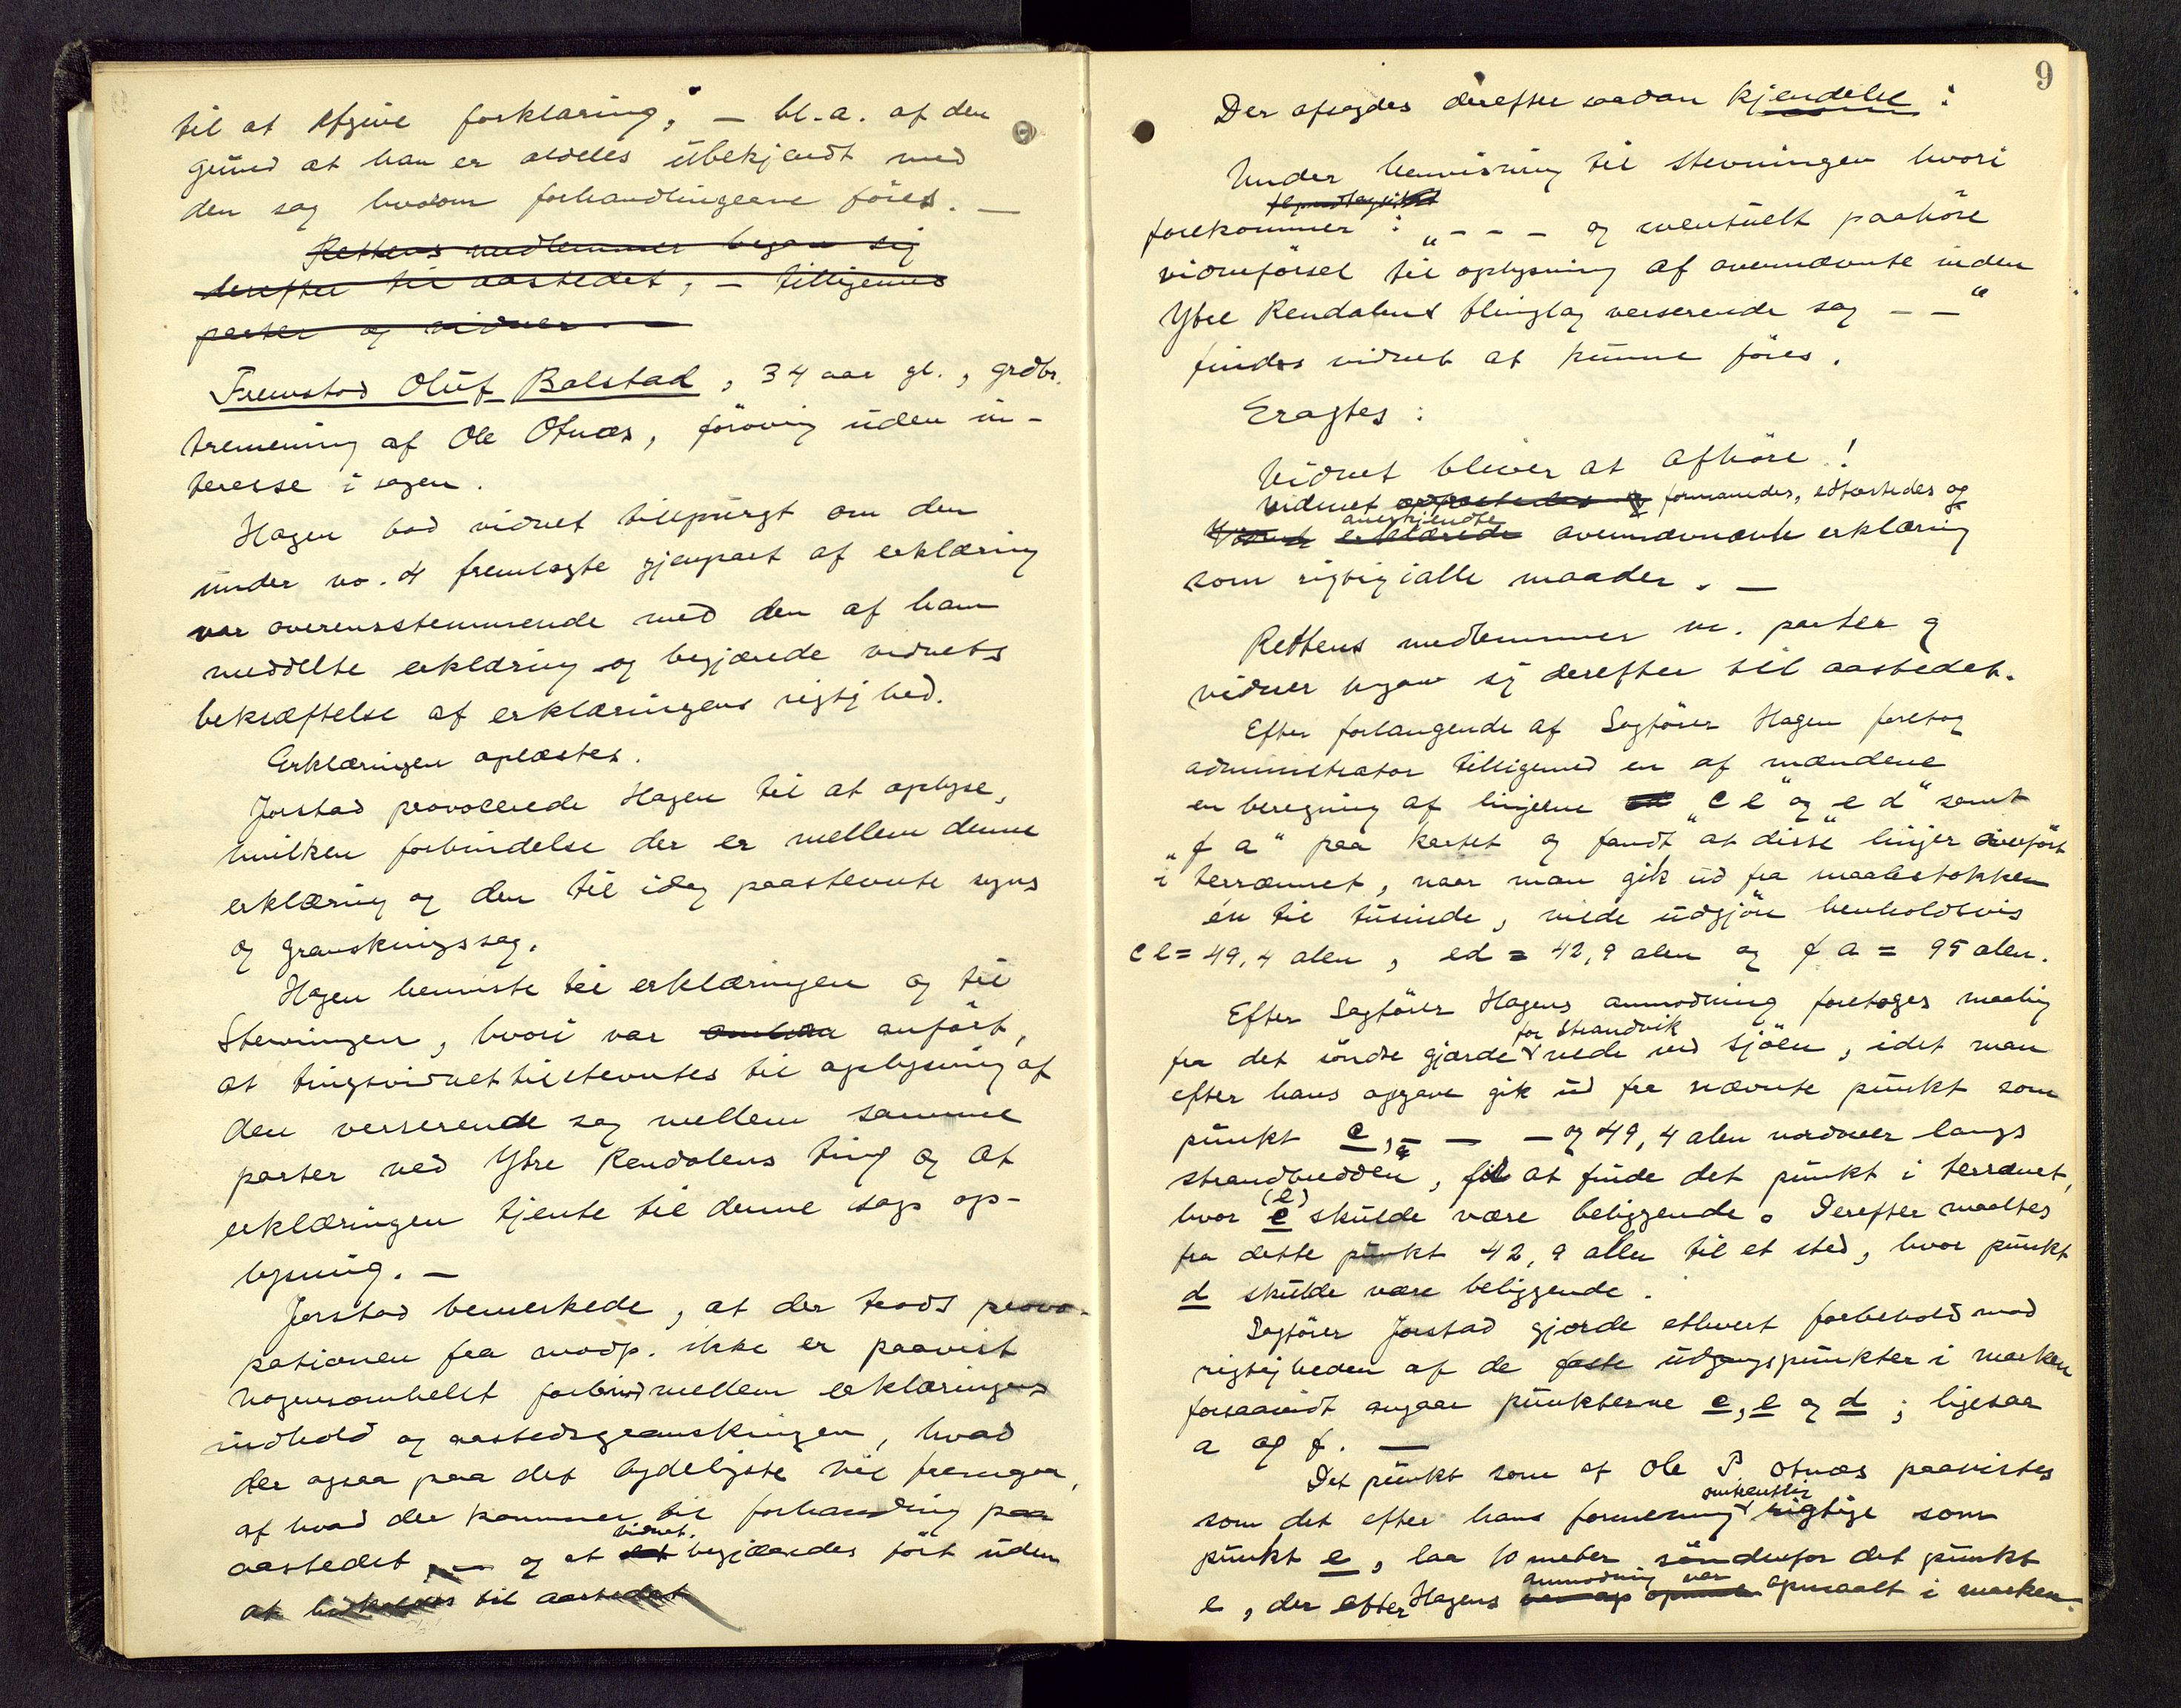 til at afgive forklaring, — bl. a. af den
grund at han er aldeles ubekjendt med
den sag hvorom forhandlingerne föres. —
Rettens medlemmer begav sig
derefter til aastedet, — tilligemed
parter og vidner. —
Fremstod Oluf Balstad, 34 aar gl., grdbr.
tremenning af Ole Otnæs, forövrig uden in-
teresse i sagen.
Hagen bad vidnet tilspurgt om den
under no. 4 fremlagte gjenpart af erklæring
var overensstemmende med den af ham
meddelte erklæring og begjærede vidnets
bekræftelse af erklæringens rigtighed.
Erklæringen oplæstes.
Jorstad provocerede Hagen til at oplyse,
hvilken forbindelse der er mellem denne
erklæring og den til idag paastevnte syns
og granskningssag.
Hagen henviste til erklæringen og til
Stevningen, hvori var anført,
at tingsvidnet tilstevntes til oplysning af
den verserende sag mellem samme
parter ved Ytre Rendalens ting og at
erklæringen tjente til denne sags op-
lysning. —
Jorstad bemerkede, at der trods provo-
kationen fra modp. ikke er paavist
nogensomhelst forbind mellem erklæringens
indhold og aastedsgranskningen, hvad
der ogsaa paa det tydeligste vil fremgaa,
af hvad der kommer til forhandling paa
aastedet — og at vidnet begjærdes fört uden
at til aastedet
9
Der afsagdes derefter saadan kjendelse:
Under henvisning til stevningen hvori
forekommer: „- - - og eventuelt paahöre
vidneförsel til oplysning af ovennævnte inden
Ytre Rendalens thinglag verserende sag - - “
findes vidnet at kunne föres.
Eragtes:
Vidnet bliver at afhöre!
Vidnet formanedes, edfæstedes og
anerkjendte ovennævnte erklæring
som rigtig i alle maader. —
Rettens medlemmer m. parter og
vidner begav sig derefter til aastedet.
Efter forlangende af Sagförer Hagen foretog
administrator tilligemed en af mændene
en beregning af linjerne „c e“ og „e d“ samt
„f a“ paa kartet og fandt at disse linjer överfört
i terrænnet, naar man gik ud fra maalestokken
én til tusinde, vilde udgjöre henholdsvis
c e = 49,4 alen, ed = 42,9 alen og f a = 95 alen.
Efter Sagförer Hagens anmodning foretoges maaling
fra det söndre gjærde for Strandvik nede ved sjöen, idet man
efter hans opgave gik ud fra nævnte punkt som
punkt c, — — og 49,4 alen nordover langs
strandbredden, for at finde det punkt i terrænet,
hvor e (e) skulde være beliggende. Derefter maaltes
fra dette punkt 42,9 alen til et sted, hvor punkt
d skulde være beliggende.
Sagförer Jorstad gjorde ethvert forbehold mod
rigtigheden af de faste udgangspunkter i marken
forsaavidt angaar punkterne c, e og d; ligesaa
a og f. —
Det punkt som af Ole P. Otnæs paavistes
som det efter hans formening omtrentlig rigtige som
punkt e, laa 10 meter söndenfor det punkt
e, der efter Hagens anmodning var opmaalt i marken.